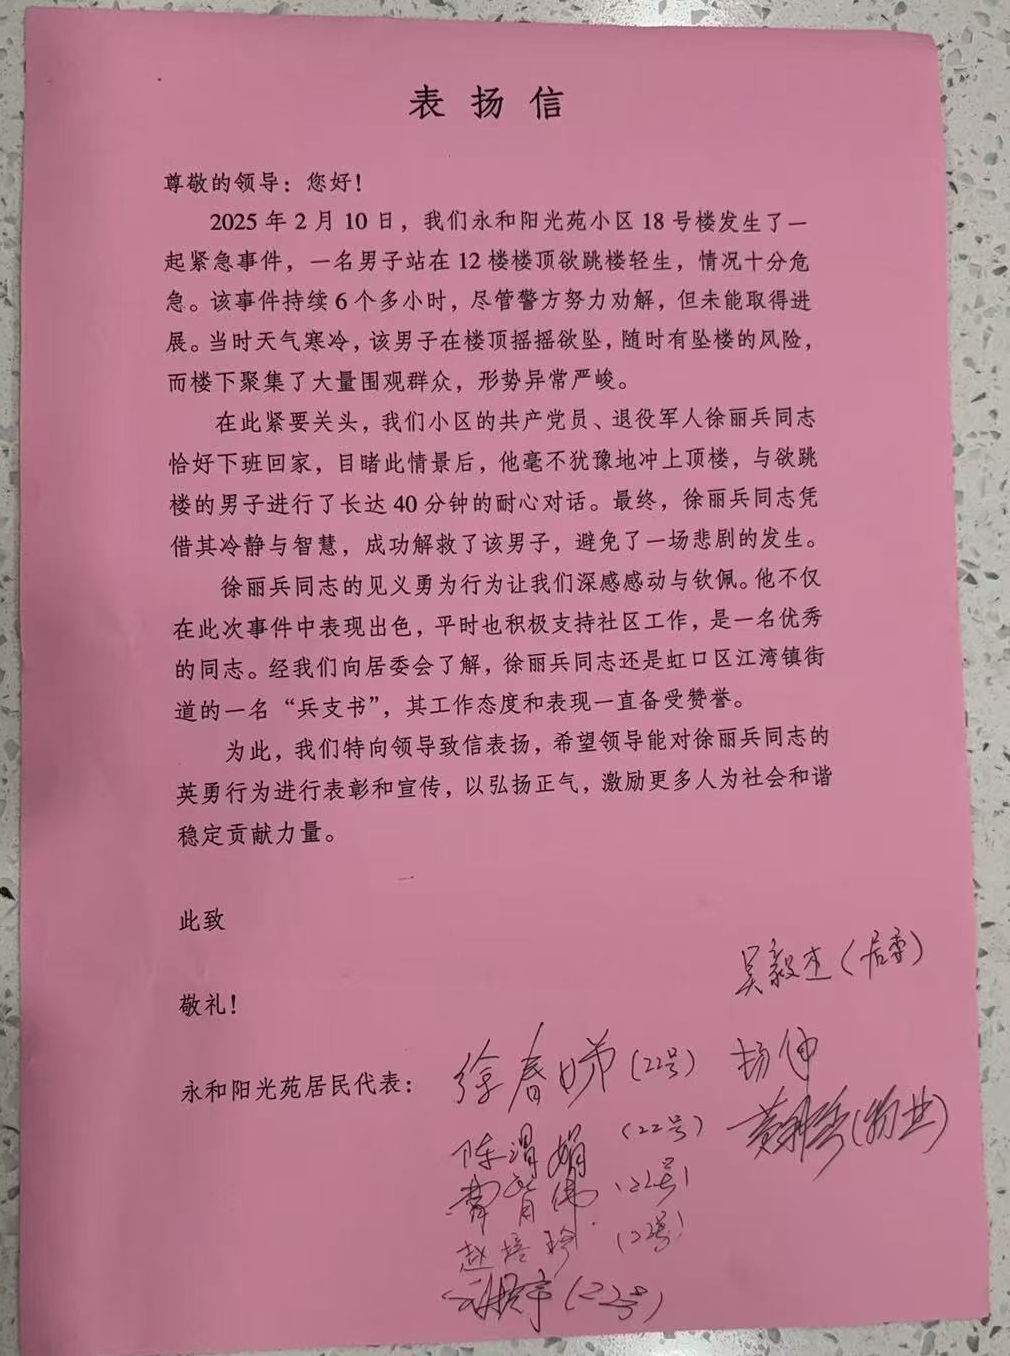 表扬信
尊敬的领导：您好！
2025年2月10日，我们永和阳光苑小区18号楼发生了一
起紧急事件，一名男子站在12楼楼顶欲跳楼轻生，情况十分危
急。该事件持续6个多小时，尽管警方努力劝解，但未能取得进
展。当时天气寒冷，该男子在楼顶摇摇欲坠，随时有坠楼的风险，
而楼下聚集了大量围观群众，形势异常严峻。
在此紧要关头，我们小区的共产党员、退役军人徐丽兵同志
恰好下班回家，目睹此情景后，他毫不犹豫地冲上顶楼，与欲跳
楼的男子进行了长达40分钟的耐心对话。最终，徐丽兵同志凭
借其冷静与智慧，成功解救了该男子，避免了一场悲剧的发生。
徐丽兵同志的见义勇为行为让我们深感感动与钦佩。他不仅
在此次事件中表现出色，平时也积极支持社区工作，是一名优秀
的同志。经我们向居委会了解，徐丽兵同志还是虹口区江湾镇街
道的一名“兵支书”，其工作态度和表现一直备受赞誉。
为此，我们特向领导致信表扬，希望领导能对徐丽兵同志的
英勇行为进行表彰和宣传，以弘扬正气，激励更多人为社会和谐
稳定贡献力量。
此致
吴毅杰（居委）
敬礼！
永和阳光苑居民代表：徐春娣（22号）
陈渭娟（22号）
（物业）
（22号）
赵培珍（22号）
（22号）